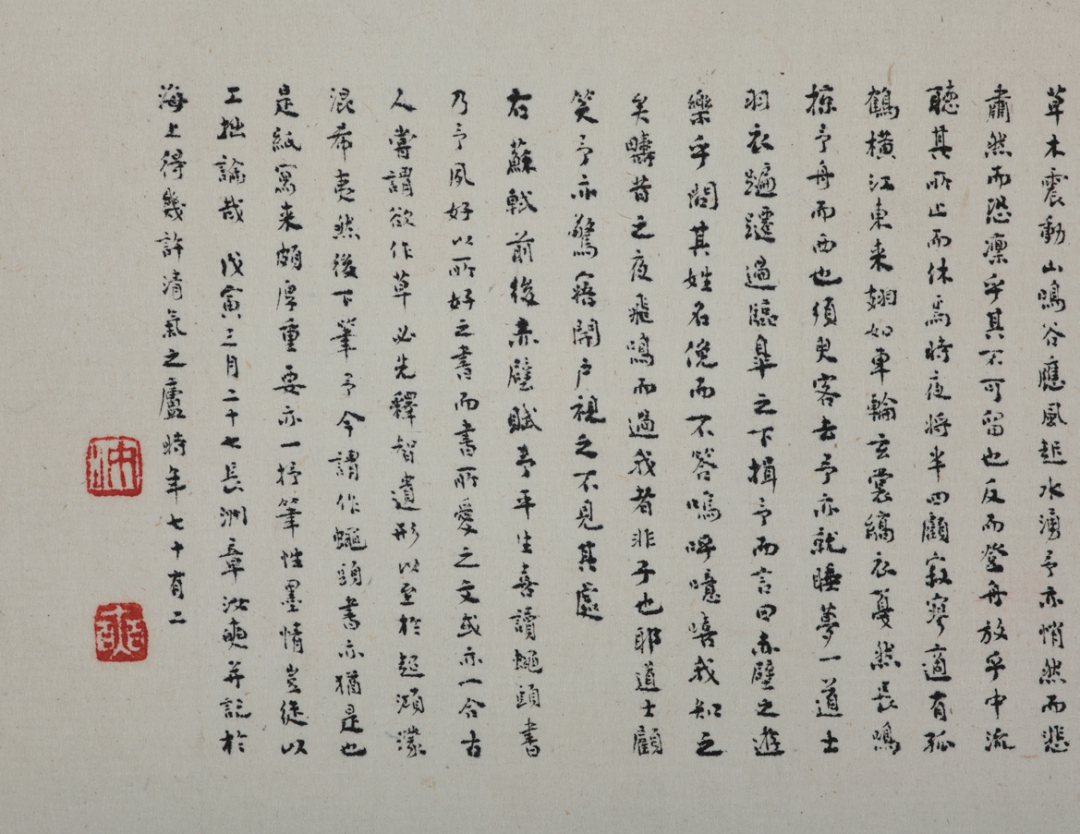 草木震動山鳴谷應風起水湧予亦悄然而悲
肅然而恐凛乎其不可留也反而登舟放乎中流
聽其所止而休焉時夜將半四顧寂寥適有孤
鶴橫江東来翅如車輪玄裳縞衣戛然長鳴
掠予舟而西也須臾客去予亦就睡夢一道士
羽衣蹁躚過臨臯之下揖予而言曰赤壁之遊
樂乎問其姓名俛而不答嗚呼噫嘻我知之
矣疇昔之夜飛鳴而過我者非子也耶道士顧
笑予亦驚寤開户視之不見其處
右蘇軾前後赤壁賦予平生喜讀蠅頭書
乃予夙好以所好之書而書所愛之文或亦一合古
人嘗謂欲作草必先釋智遺形以至於超鴻濛
混希夷然後下筆予今謂作蠅頭書亦猶是也
是紙寫来頗厚重要亦一抒筆性墨情豈徒以
工拙論哉 戊寅三月二十七長洲章汝奭并記於
海上得幾許清氣之廬時年七十有二
汝奭